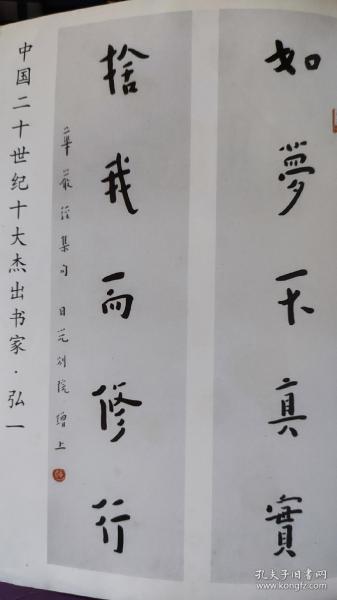 如夢不真實
捨我而修行
華嚴經集句 日光別院 上
中国二十世纪十大杰出书家·弘一
孔夫子旧书网
kongfz.com